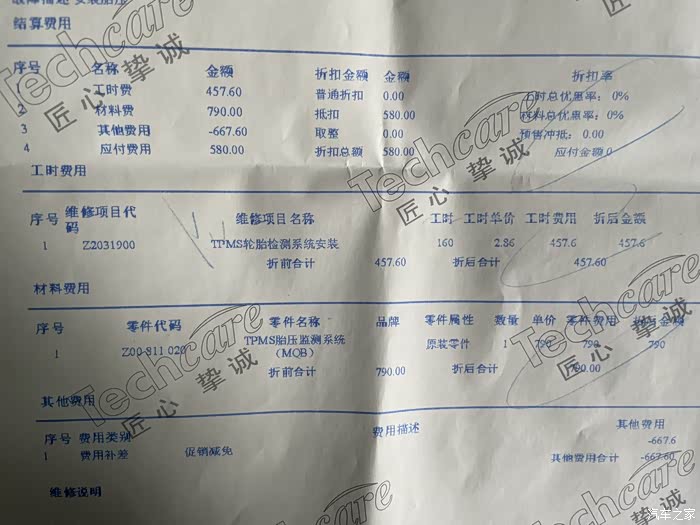 故障描述 安装胎压
结算费用
序号 名称 金额 折扣金额 金额 折扣率
1 工时费 457.60 普通折扣 0.00 工时总优惠率: 0%
2 材料费 790.00 抵扣 580.00 材料总优惠率: 0%
3 其他费用 -667.60 取整 0.00 预售冲抵: 0.00
4 应付费用 580.00 折扣总额 580.00 应付金额0
工时费用
序号 维修项目代码 维修项目名称 工时 工时单价 工时费用 折后金额
1 Z2031900 TPMS轮胎检测系统安装 160 2.86 457.6 457.6
折前合计 457.60 折后合计 457.60
材料费用
序号 零件代码 零件名称 品牌 零件属性 数量 单价 零件费用 折后金额
1 Z00 811 020 TPMS胎压监测系统(MQB) 原装零件 1 790 790 790
折前合计 790.00 折后合计 790.00
其他费用
序号 费用类别 费用描述 其他费用
1 费用补差 促销减免 -667.6
其他费用合计 -667.60
维修说明
Techcare
匠心挚诚
Techcare
匠心挚诚
Techcare
匠心挚诚
Techcare
匠心挚诚
Techcare
匠心挚诚
汽车之家